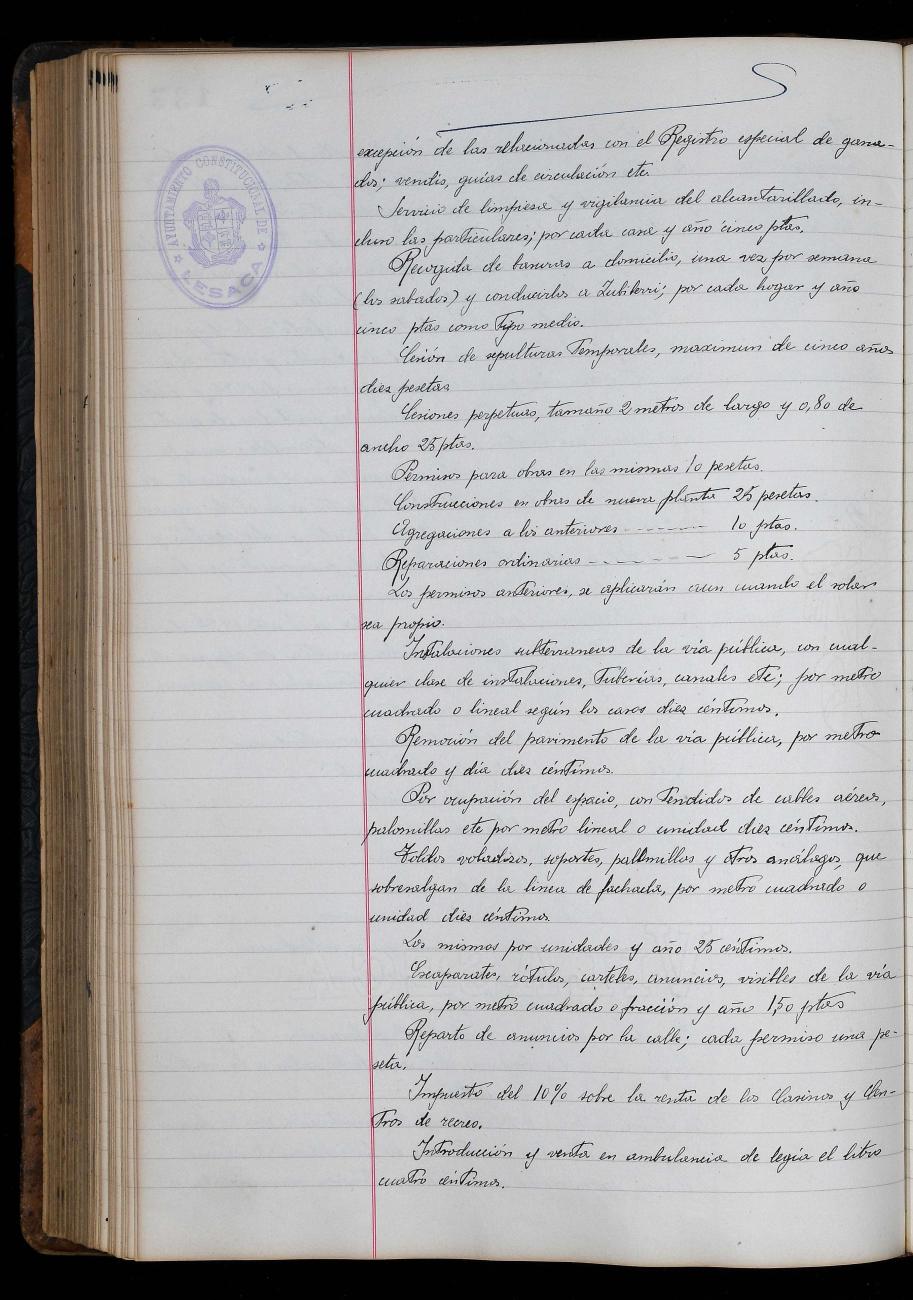 AYUNTAMIENTO CONSTITUCIONAL DE
LESACA
excepción de las relacionadas con el Registro especial de gana-
dos; vendis, guias de circulación etc.
Servicio de limpiesa y vigilancia del alcantarillado, in-
cluso las particulares; por cada casa y año cinco ptas.
Recogida de basuras a domicilio, una vez por semana
(los sabados) y conducirlos a Zubiberri; por cada hogar y año
cinco ptas como Tipo medio.
Cesión de sepulturas Temporales, maximun de cinco años
diez pesetas
Cesiones perpetuas, tamaño 2 metros de largo y 0,80 de
ancho 25 ptas.
Permisos para obras en las mismas 10 pesetas.
Construcciones en obras de nueva planta 25 pesetas.
Agregaciones a los anteriores ------- 10 ptas.
Reparaciones ordinarias ------- 5 ptas.
Los permisos anteriores, se aplicarán aun cuando el solar
sea propio.
Instalaciones subterraneas de la vía pública, con cual-
quier clase de instalaciones, Tuberías, canales etc; por metro
cuadrado o lineal según los casos diez céntimos.
Remoción del pavimento de la vía pública, por metro
cuadrado y día diez céntimos.
Por ocupación del espacio, con Tendidos de cables aéreos,
palomillas etc por metro lineal o unidad diez céntimos.
Toldos voladizos, soportes, palomillas y otros análogos, que
sobresalgan de la linea de fachada, por metro cuadrado o
unidad diez céntimos
Los mismos por unidades y año 25 céntimos.
Escaparates, rótulos, carteles, anuncios, visibles de la vía
pública, por metro cuadrado o fracción y año 1,50 ptas
Reparto de anuncios por la calle; cada permiso una pe-
seta.
Impuesto del 10% sobre la renta de los Casinos y Cen-
Tros de recreo.
Introducción y venta en ambulancia de legía el litro
cuatro céntimos.